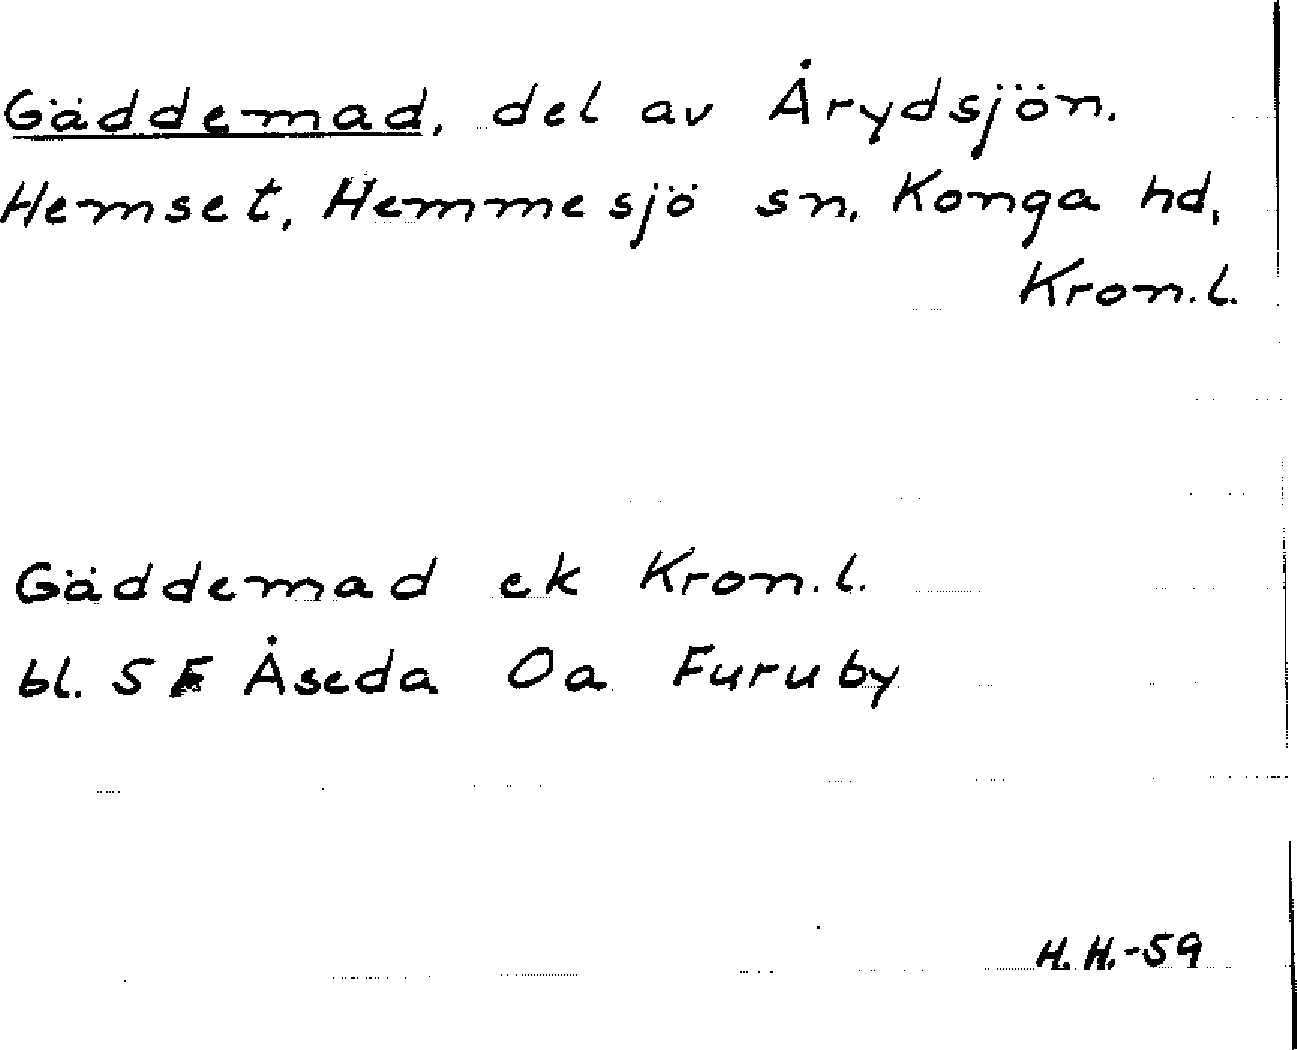 Gäddemad, del av Årydsjön.
Hemset, Hemmesjö sn, Konga hd,
Kron.l.
Gäddemad ek Kron.l.
bl. 5 F Åseda Oa Furuby
H.H.-59